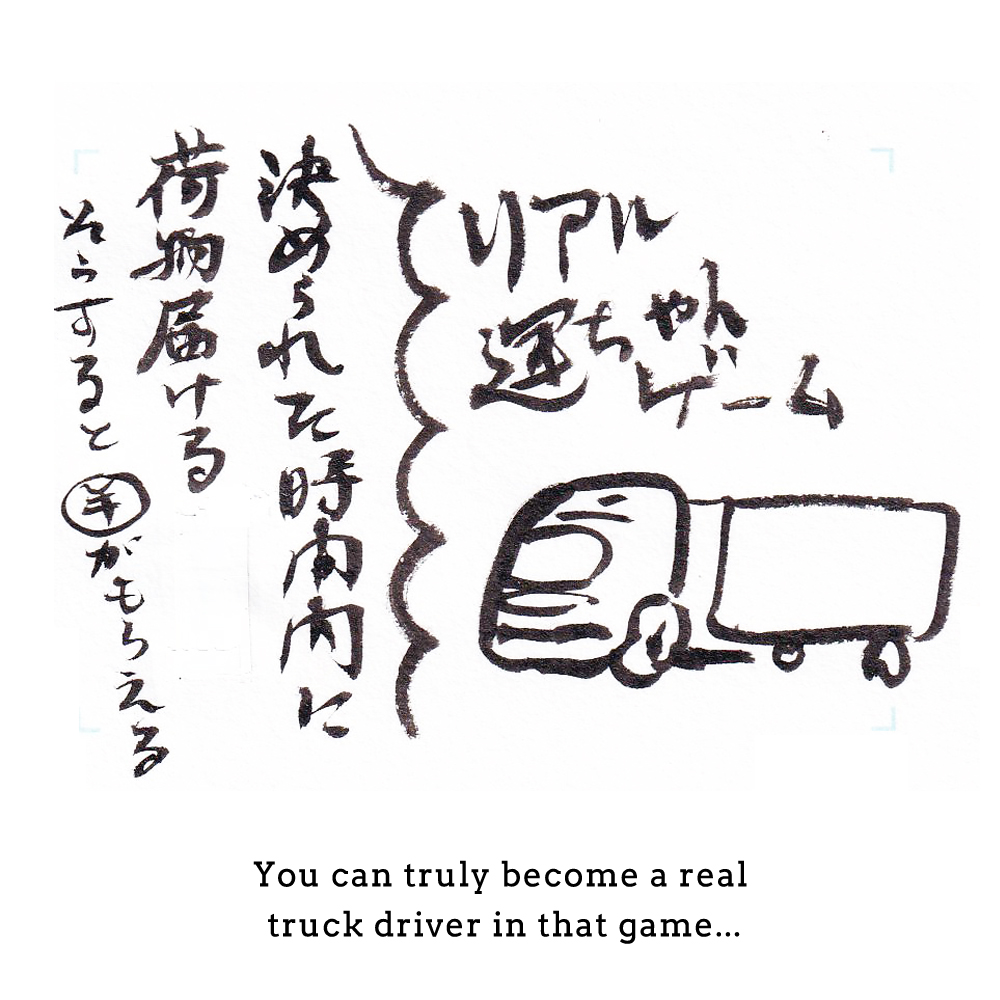 リアル
運ちゃん
ゲーム
決められた時間内に
荷物届ける
そうすると¥がもらえる
You can truly become a real
truck driver in that game...